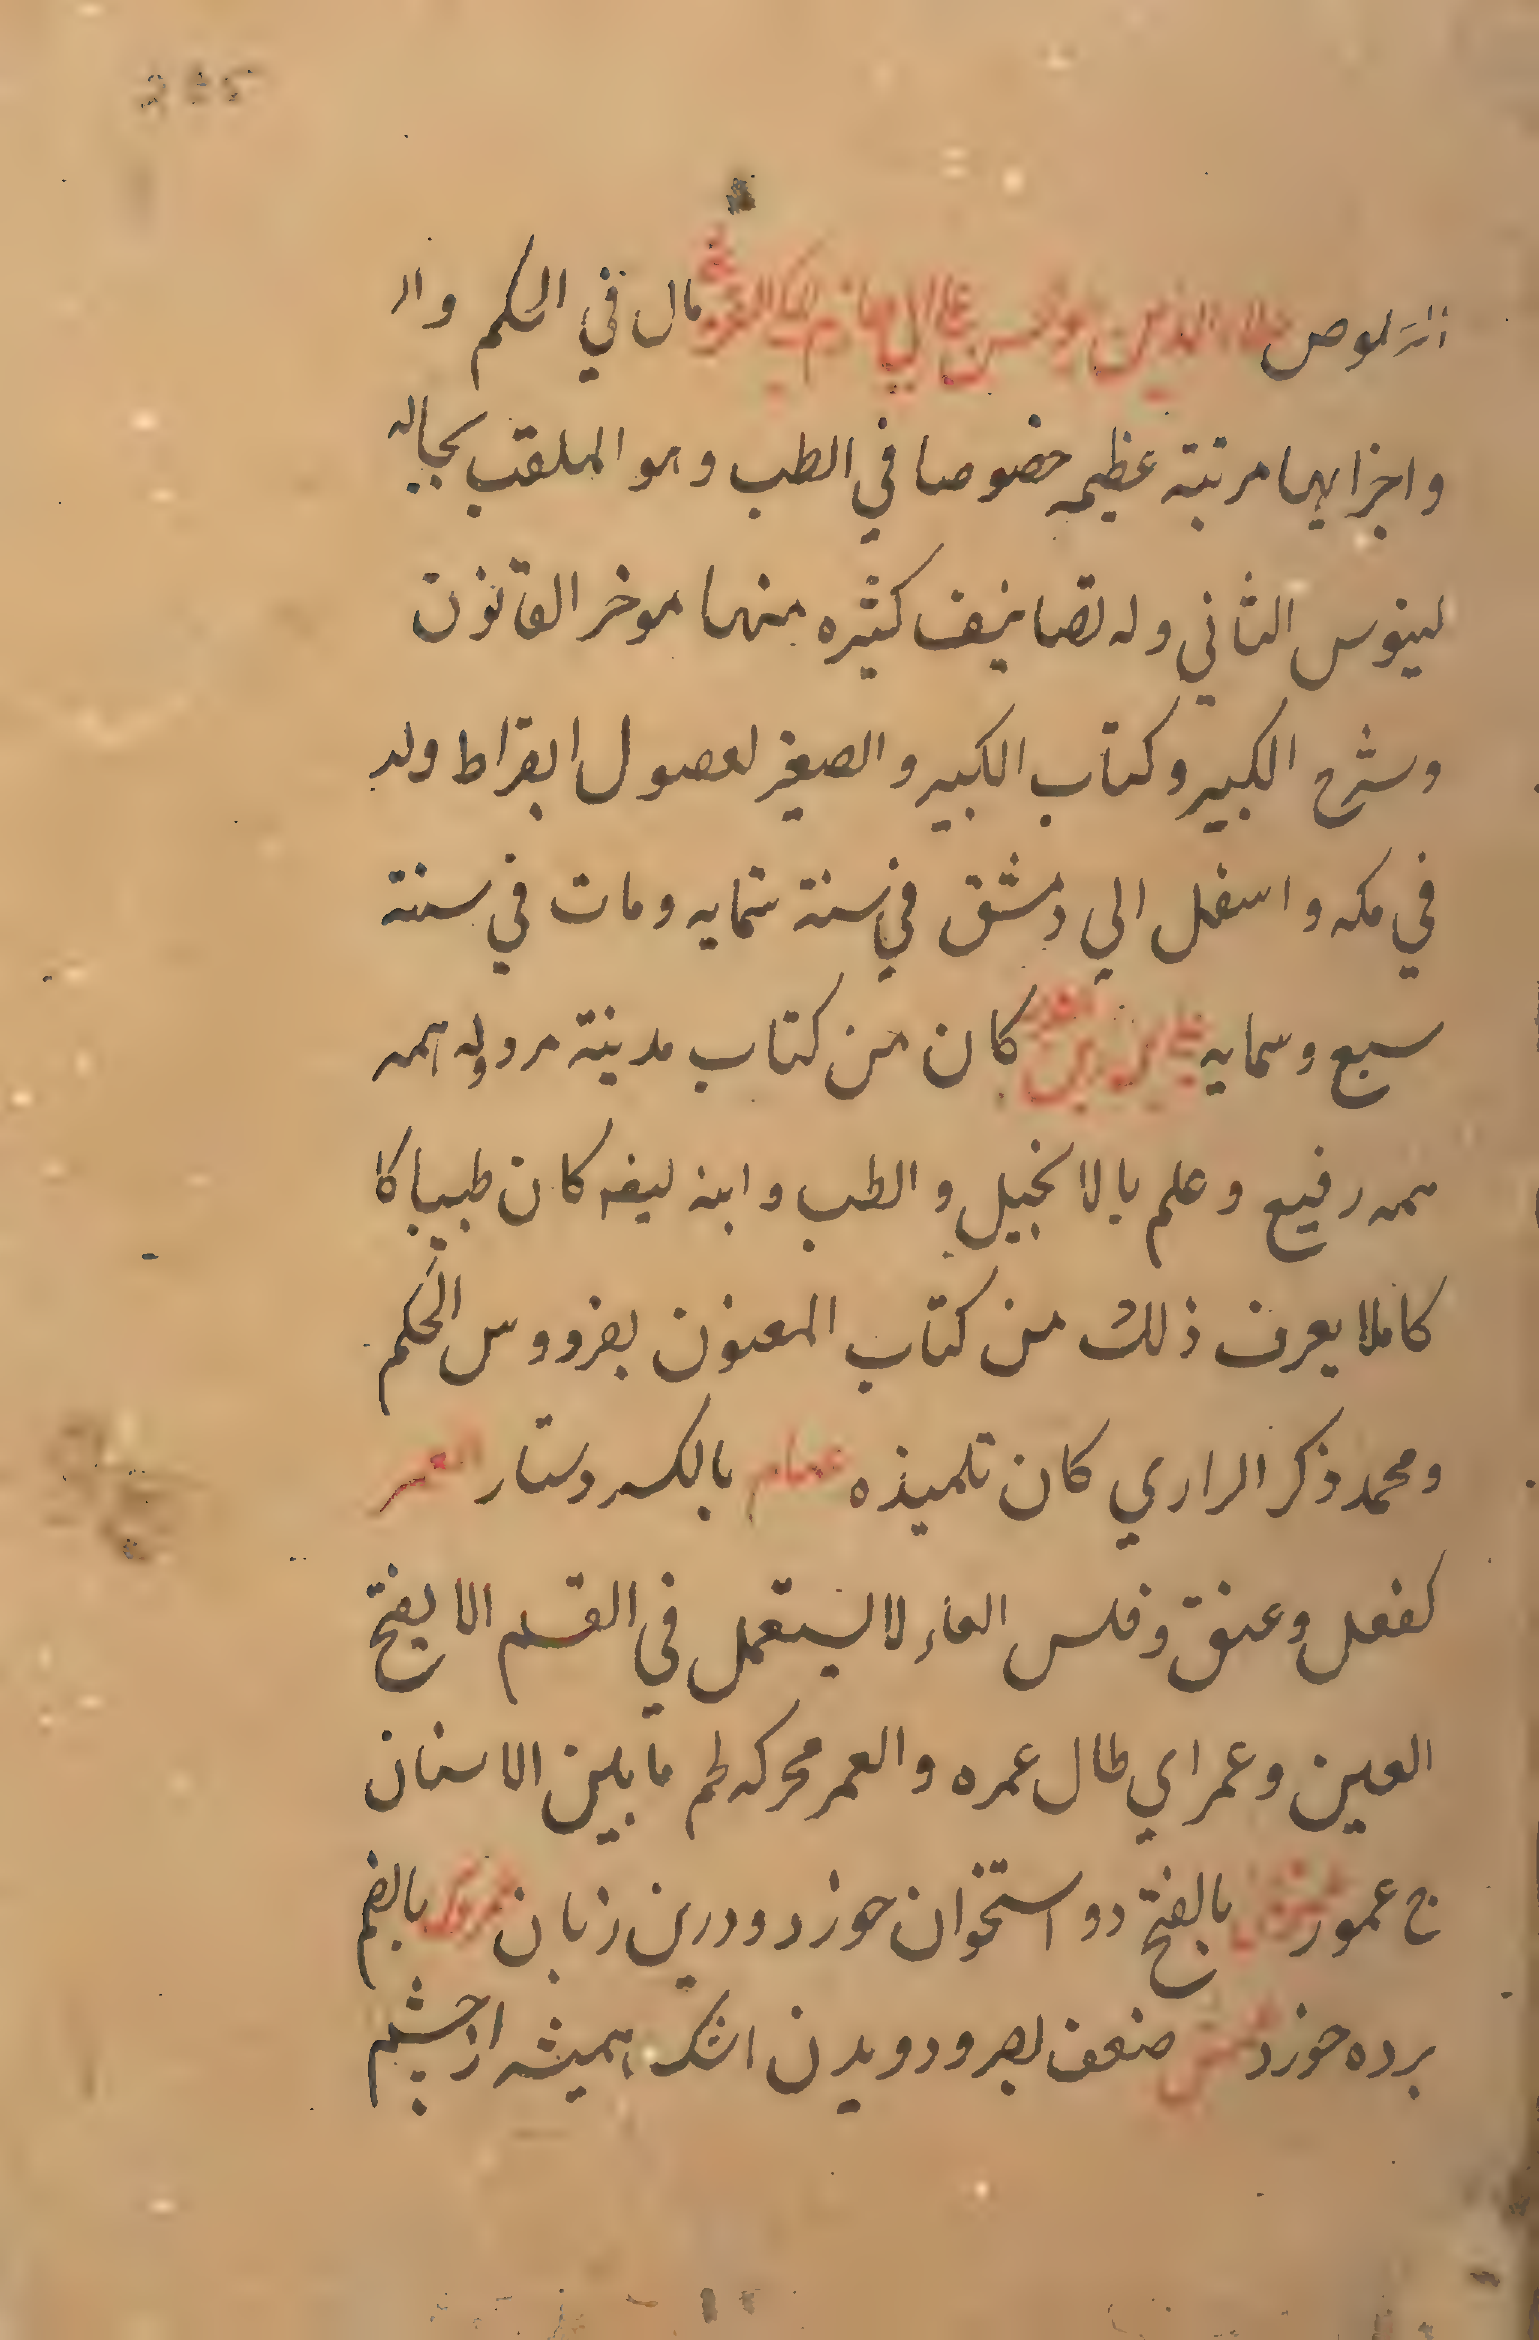 علاء الدين بن ابي حازم القرشي مال في الحكم وال
واجزايهما مرتبة عظيمه خضوصا في الطب وهو الملقب بجاله
لينوس الثاني وله تصانيف كثيره منها موخر القانون
وشرح الكبير وكتاب الكبير والصغير لعصول ابقراط ولد
في مكه واسفل الي دمشق في سنة ستمايه ومات في سنة
سبع وسمايه كان من كتاب مدينة مرو وله همه
همه رفيع وعلم بالانجيل والطب وابنه ليفه كان طبيبا كا
كاملا يعرف ذلك من كتاب المعنون بفردوس الحكم
ومحمد ذكر الراري كان تلميذه عمام بالكسر دستار العمر
كفعل وعنق وفلس الفاء لا ليستعمل في القسم الا بفتح
العين وعمر اي طال عمره والعمر محركه لحم ما بين الاسنان
ج عمور بالفتح دو استخوان خورد در بن زبان بالضم
برده خورد عمش ضعف بصر ودويدن اشك هميشه از چشم